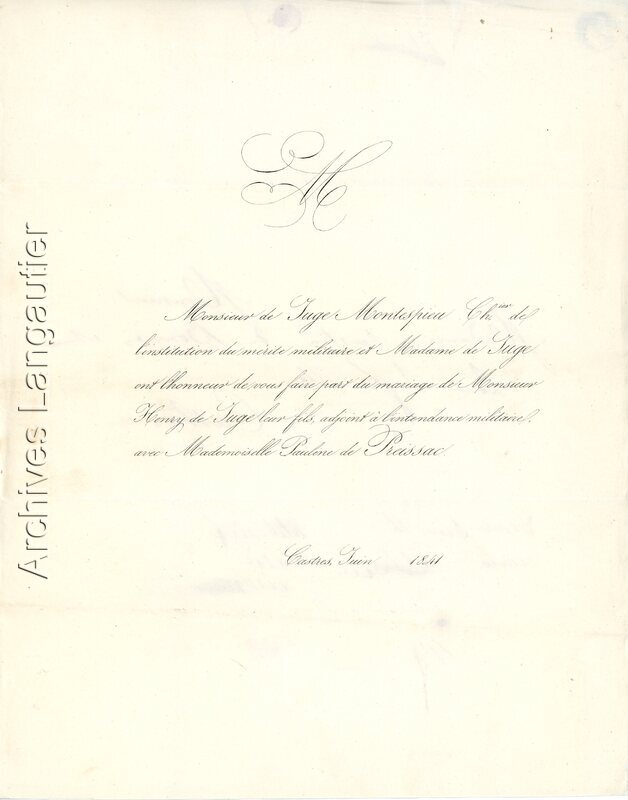 M
Monsieur de Juge Montespieu Ch.ier de
l'institution du mérite militaire et Madame de Juge
ont l'honneur de vous faire part du mariage de Monsieur
Henry de Juge leur fils, adjoint à l'intendance militaire,
avec Mademoiselle Pauline de Preissac.
Castres, Juin 1841
Archives Langautier